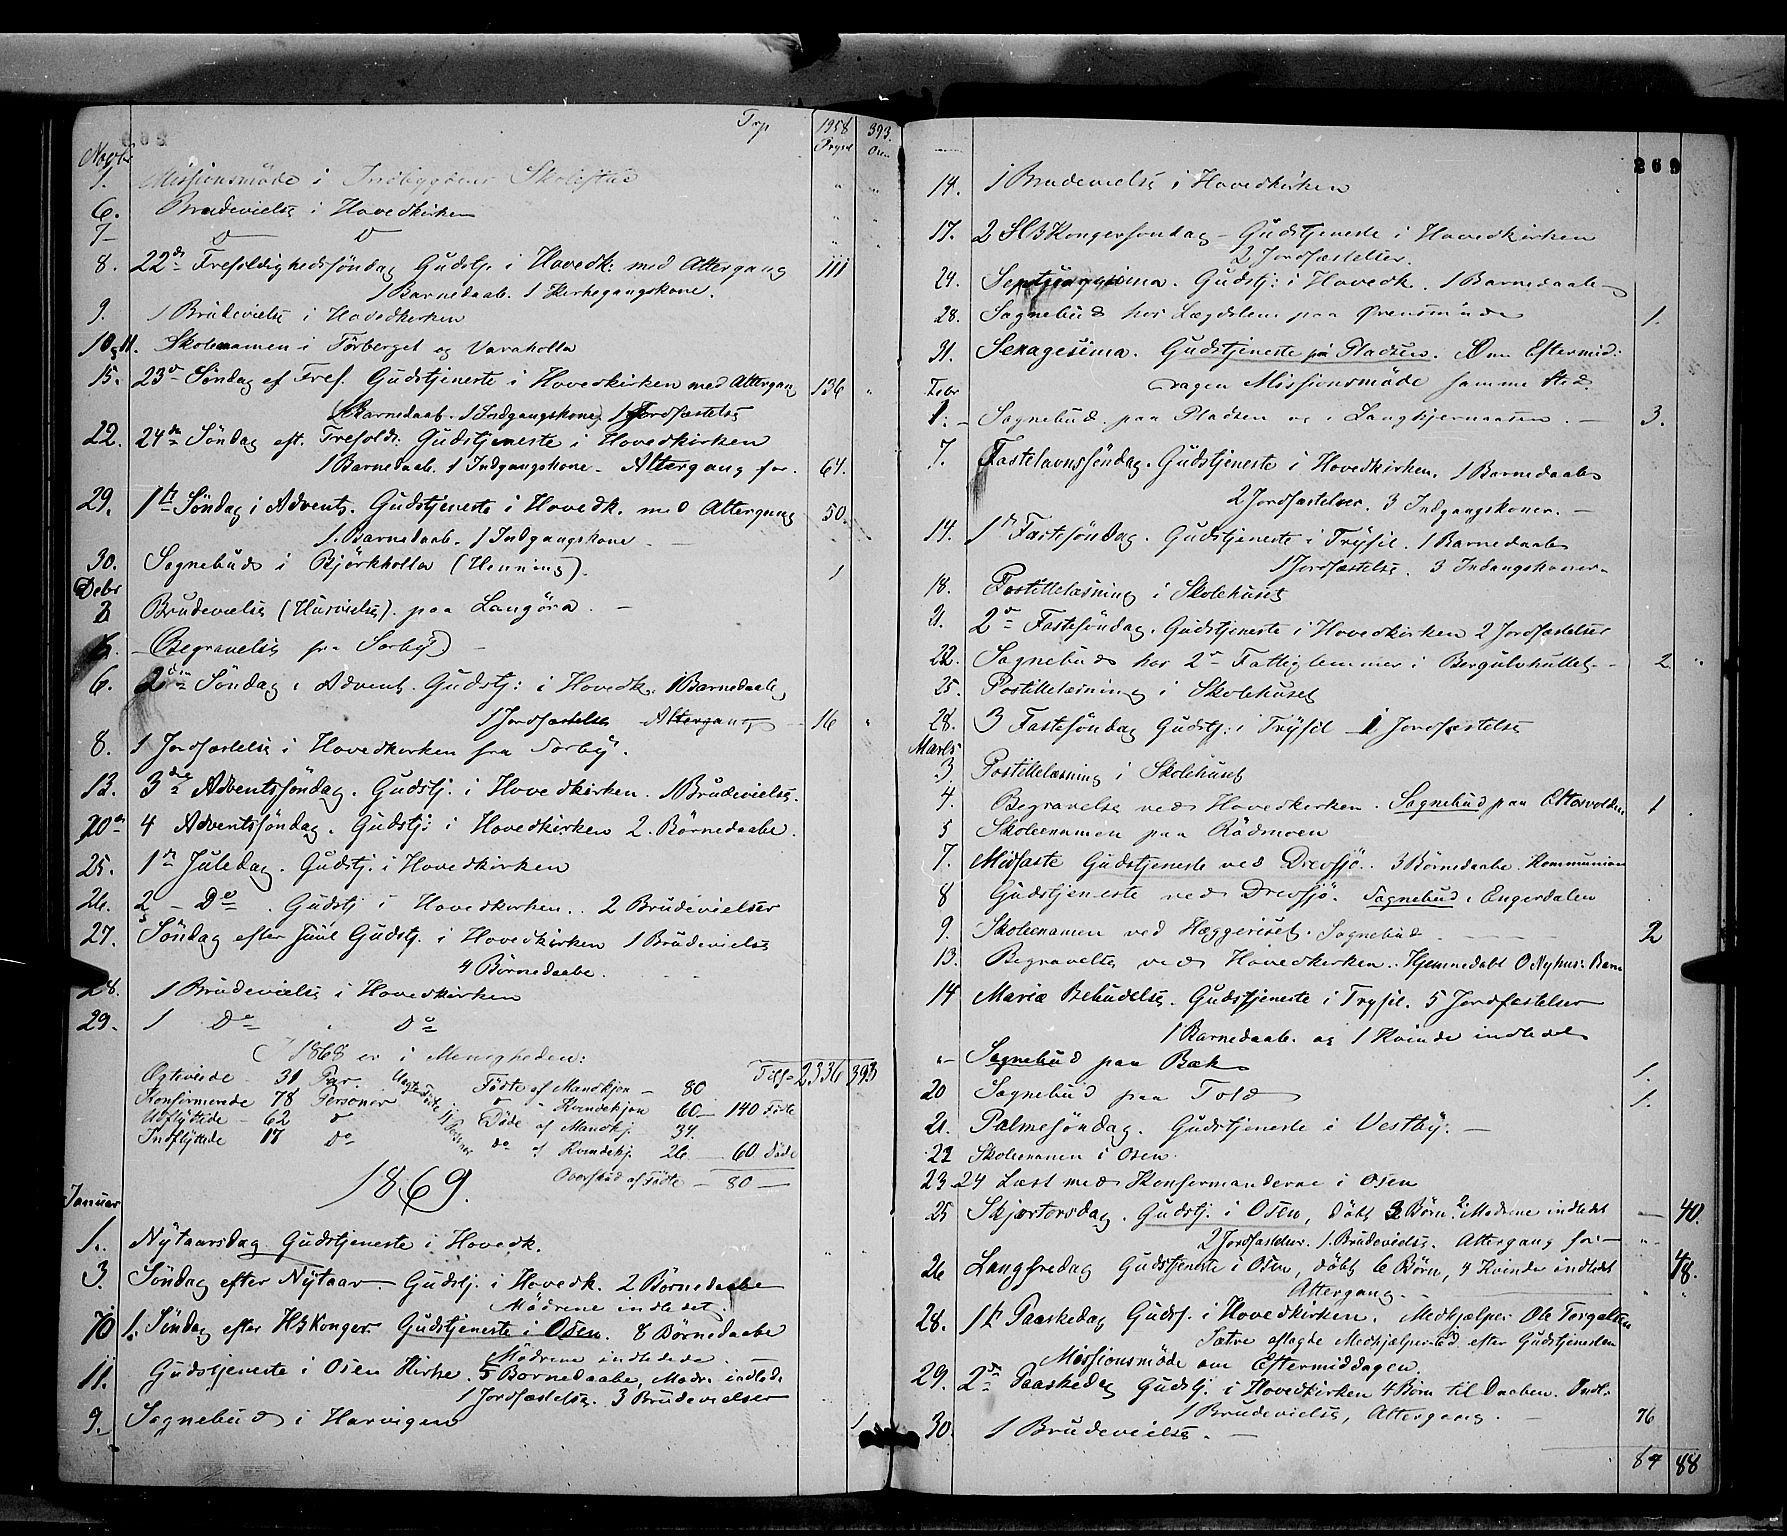 Trp 1958 393.
Trysil Osen
Novbr
1. Missionsmøde i Indbygdens Skolestue
6. Brudevielse i Hovedkirken
7 – D D
8. 22de Trefoldighedssøndag Gudstj. i Hovedk: med Altergang 111
1 Barnedaab. 1 Kirkegangskone.
9. 1 Brudevielse i Hovedkirken
10 og 11. Skolexamen i Tørberget og Varaholla
15. 23de Søndag ef Tref. Gudstjeneste i Hovedkirken med Altergang 136
1 Barnedaab. 1 Indgangskone, 1 Jordfæstelse
22. 24de Søndag eft. Trefold: Gudstjeneste i Hovedkirken
1 Barnedaab. 1 Indgangskone – Altergang for. 64.
29. 1te Søndag i Advent. Gudstjeneste i Hovedk. med Altergang 50.
1 Barnedaab. 1 Indgangskone –
30. Sognebud i Bjørkholla (Henning). 1
Debr
Brudevielse (Huusvielse) paa Langøra. –
Begravelse fra Sorby
6. 2den Søndag i Advent. Gudstj: i Hovedk. 1 Barnedaab
1 Jordfæstelse Altergang 16
8. 1 Jordfæstelse i Hovedkirken fra Sorby.
13. 3die Adventssøndag. Gudstj. i Hovedkirken. 1 Brudevielse.
20de 4 Adventssøndag. Gudstj: i Hovedkirken 2. Børnedaabe.
25. 1te Juledag. Gudstj. i Hovedkirken
26. 2 – Do . Gudstj i Hovedkirken.. 2 Brudevielser
27. Søndag efter Juul Gudstj. i Hovedkirken 1 Brudevielse
4 Børnedaabe.
28. 1 Brudevielse i Hovedkirken
29. 1 Do . Do
I 1868 er i Menigheden:
Ægteviede – 31 Par. Fødte af Mandkjøn – 80 Tils. 2336 393
Konfirmerede 78 Personer " – Kvindekjøn 60 – 140 Fødte
Udflyttede – 62 D Døde af Mandkj. 34.
Indflyttede 17 Do Do af Kvindekj. 26 – 60 Døde
Overskud af Fødte – 80 –
1869.
Januar
1. Nytaarsdag Gudstjeneste i Hovedk.
3. Søndag efter Nytaar – Gudstj. i Hovedk. 2 Børnedaabe
Mødrene indledet.
10 1. Søndag efter H3Konger. Gudstjeneste i Osen. 8 Børnedaabe
Mødrene indledede. –
11. Gudstjeneste i Osen Kirke. 5 Børnedaabe, Mødr. indled:
1 Jordfæstelse. 3 Brudevielser
9. Sognebud i Harvigen 1
269
14. 1 Brudevielse i Hovedkirken
17. 2 S H3Kongersøndag – Gudstjeneste i Hovedkirken
2 Jordfæstelser.
24. Septuagesima. Gudstj: i Hovedk. 1 Barnedaab
28. Sognebud hos Lægdslem paa Ørensminde 1.
31. Sexagesima. Gudstjeneste på Pladsen. Om Eftermid:
dagen Missionsmøde samme Sted.
Febr
1. – Sognebud paa Pladsen og Langtjernaasen. – 3.
7. Fastelavnssøndag. Gudstjeneste i Hovedkirken. 1 Barnedaab
2 Jordfæstelser. 3 Indgangskoner. –
14. 1te Fastesøndag. Gudstjeneste i Trysil. 1 Barnedaab
1 Jordfæstelse. 3 Indgangskoner.
18. Postillelæsning i Skolehuset
21. 2den Fastesøndag. Gudstjeneste i Hovedkirken 2 Jordfæstelser
22. Sognebud hos 2de Fattiglemmer i Bergulvhullet – 2
25. Postillelæsning i Skolehuset
28. 3 Fastesøndag Gudstj: i Trysil – 1 Jordfæstelse
Marts
3. Postillelæsning i Skolehuset
4. Begravelse ved Hovedkirken. Sognebud paa Ottosvolden 1
5 Skolexamen paa Rødmoen
7. Midfaste Gudstjeneste ved Drevsjø. 3 Børnedaabe. Kommunion
8 Gudstjeneste ved Drevsjø. Sognebud i Engerdalen
9. Skolexamen ved Hæggeriset. Sognebud 2
13. Begravelse ved Hovedkirken.. Hjemmedøbt O Nyhus: Barn
14 Mariæ Bebudelse. Gudstjeneste i Trysil. 5 Jordfæstelser
1 Barnedaab. og 1 Kvinde indledet
"– Sognebud paa Bæk 1.
20 Sognebud paa Told 1.
21. Palmesøndag. Gudstjeneste i Vestby. –
22 Skolexamen i Osen
23 24 Læst med Konfirmanderne i Osen
25 Skjærtorsdag. Gudstj. i Osen, døbt 3 Børn 2 Mødrene indledet – 40.
2 Jordfæstelser. 1 Brudevielse. Altergang for –
26 Langfredag Gudstjeneste i Osen, døbt 6 Børn, 4 Kvinder indledet 48.
Altergang. –
28. 1te Paaskedag Gudstj. i Hovedkirken. Medhjælper Ole Torgalsen
Sætre aflagde Medhjælper-Ed efter Gudstjenesten
Missionsmøde om Eftermiddagen.
29. 2den Paaskedag Gudstj. i Hovedkirken 4 Børn til Daaben. Indl:
1 Brudevielse, Altergang. – 76
30. 1 Brudevielse. –
87 88